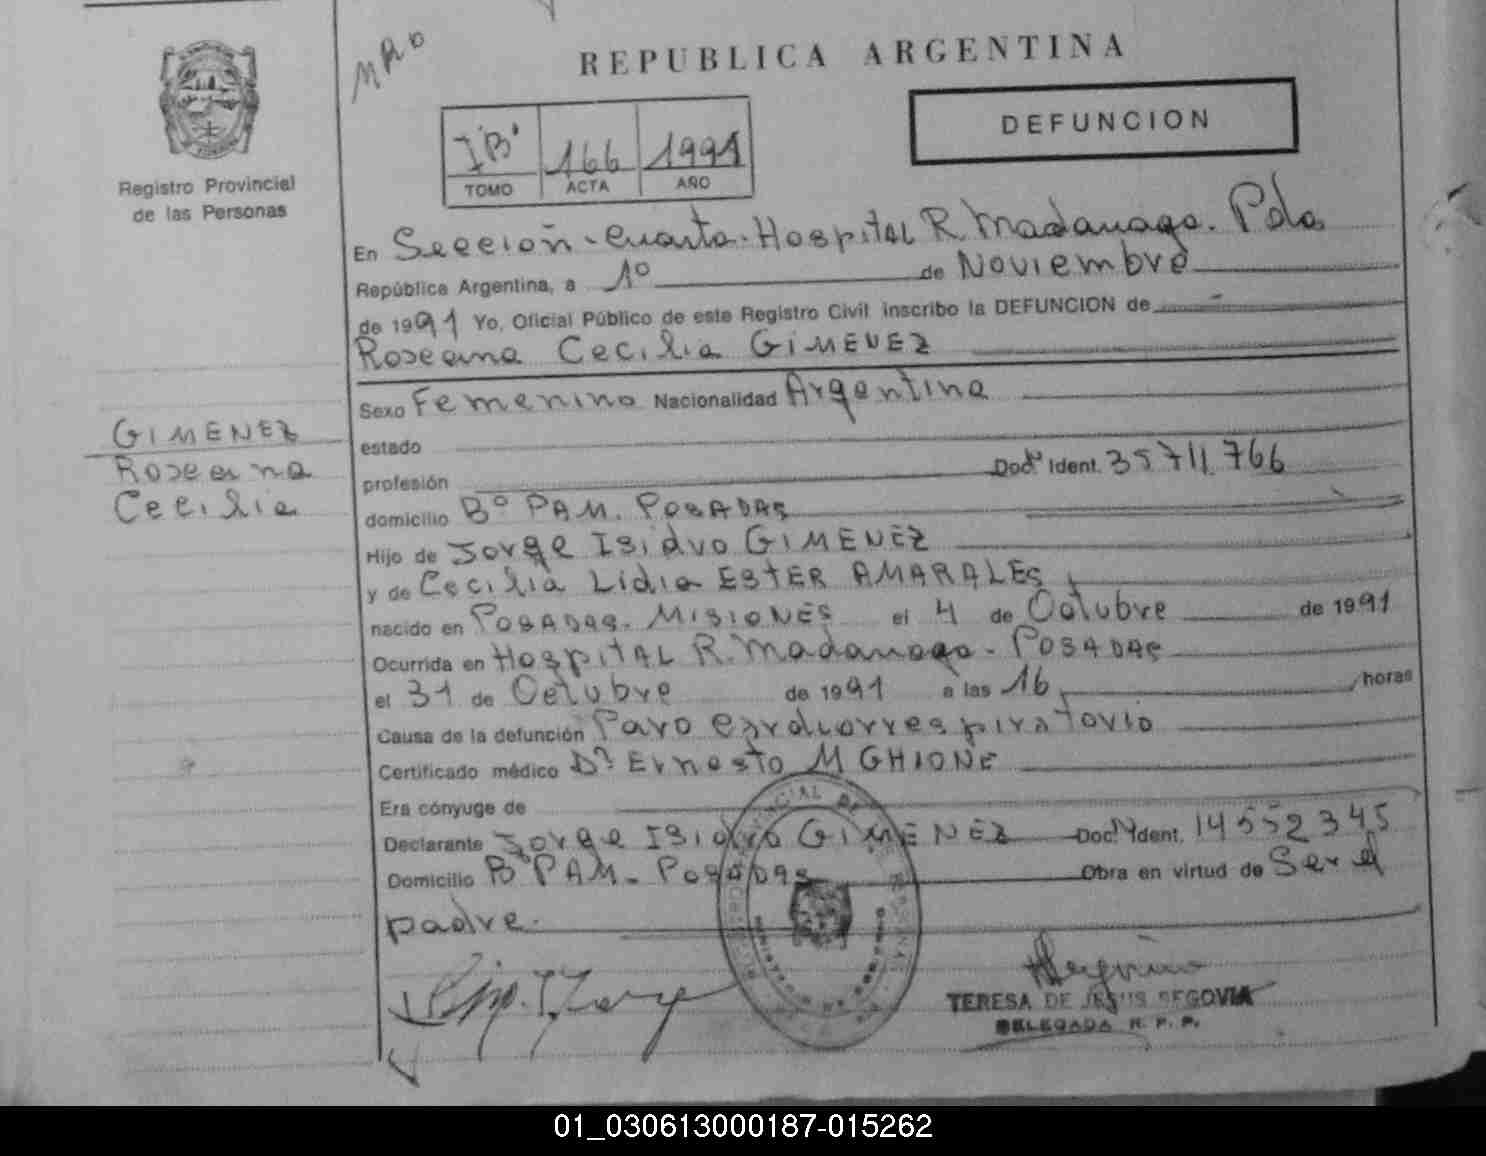 MRO
REPUBLICA ARGENTINA
DEFUNCION
IB' 166 1991
TOMO ACTA AÑO
Registro Provincial
de las Personas
En Sección-Cuarta-Hospital R. Madariaga. Pdas
República Argentina, a 1º de Noviembre
de 1991 Yo, Oficial Público de este Registro Civil inscribo la DEFUNCION de
Roseana Cecilia GIMENEZ
GIMENEZ
Roseana
Cecilia
Sexo Femenino Nacionalidad Argentina
estado
profesión Docº Ident. 35711.766
domicilio Bº PAM. POSADAS
Hijo de Jorge Isidro GIMENEZ
y de Cecilia Lidia ESTER AMARALES
nacido en POSADAS. MISIONES el 4 de Octubre de 1991
Ocurrida en Hospital R. Madariaga - POSADAS
el 31 de Octubre de 1991 a las 16 horas
Causa de la defunción Paro cardiorrespiratorio
Certificado médico Dr. Ernesto M GHIONE
Era cónyuge de
Declarante Jorge Isidro GIMENEZ Doc. Ident. 14552345
Domicilio Bº PAM. Posadas Obra en virtud de Ser el
padre.
TERESA DE JESUS SEGOVIA
DELEGADA R. P. P.
01_030613000187-015262